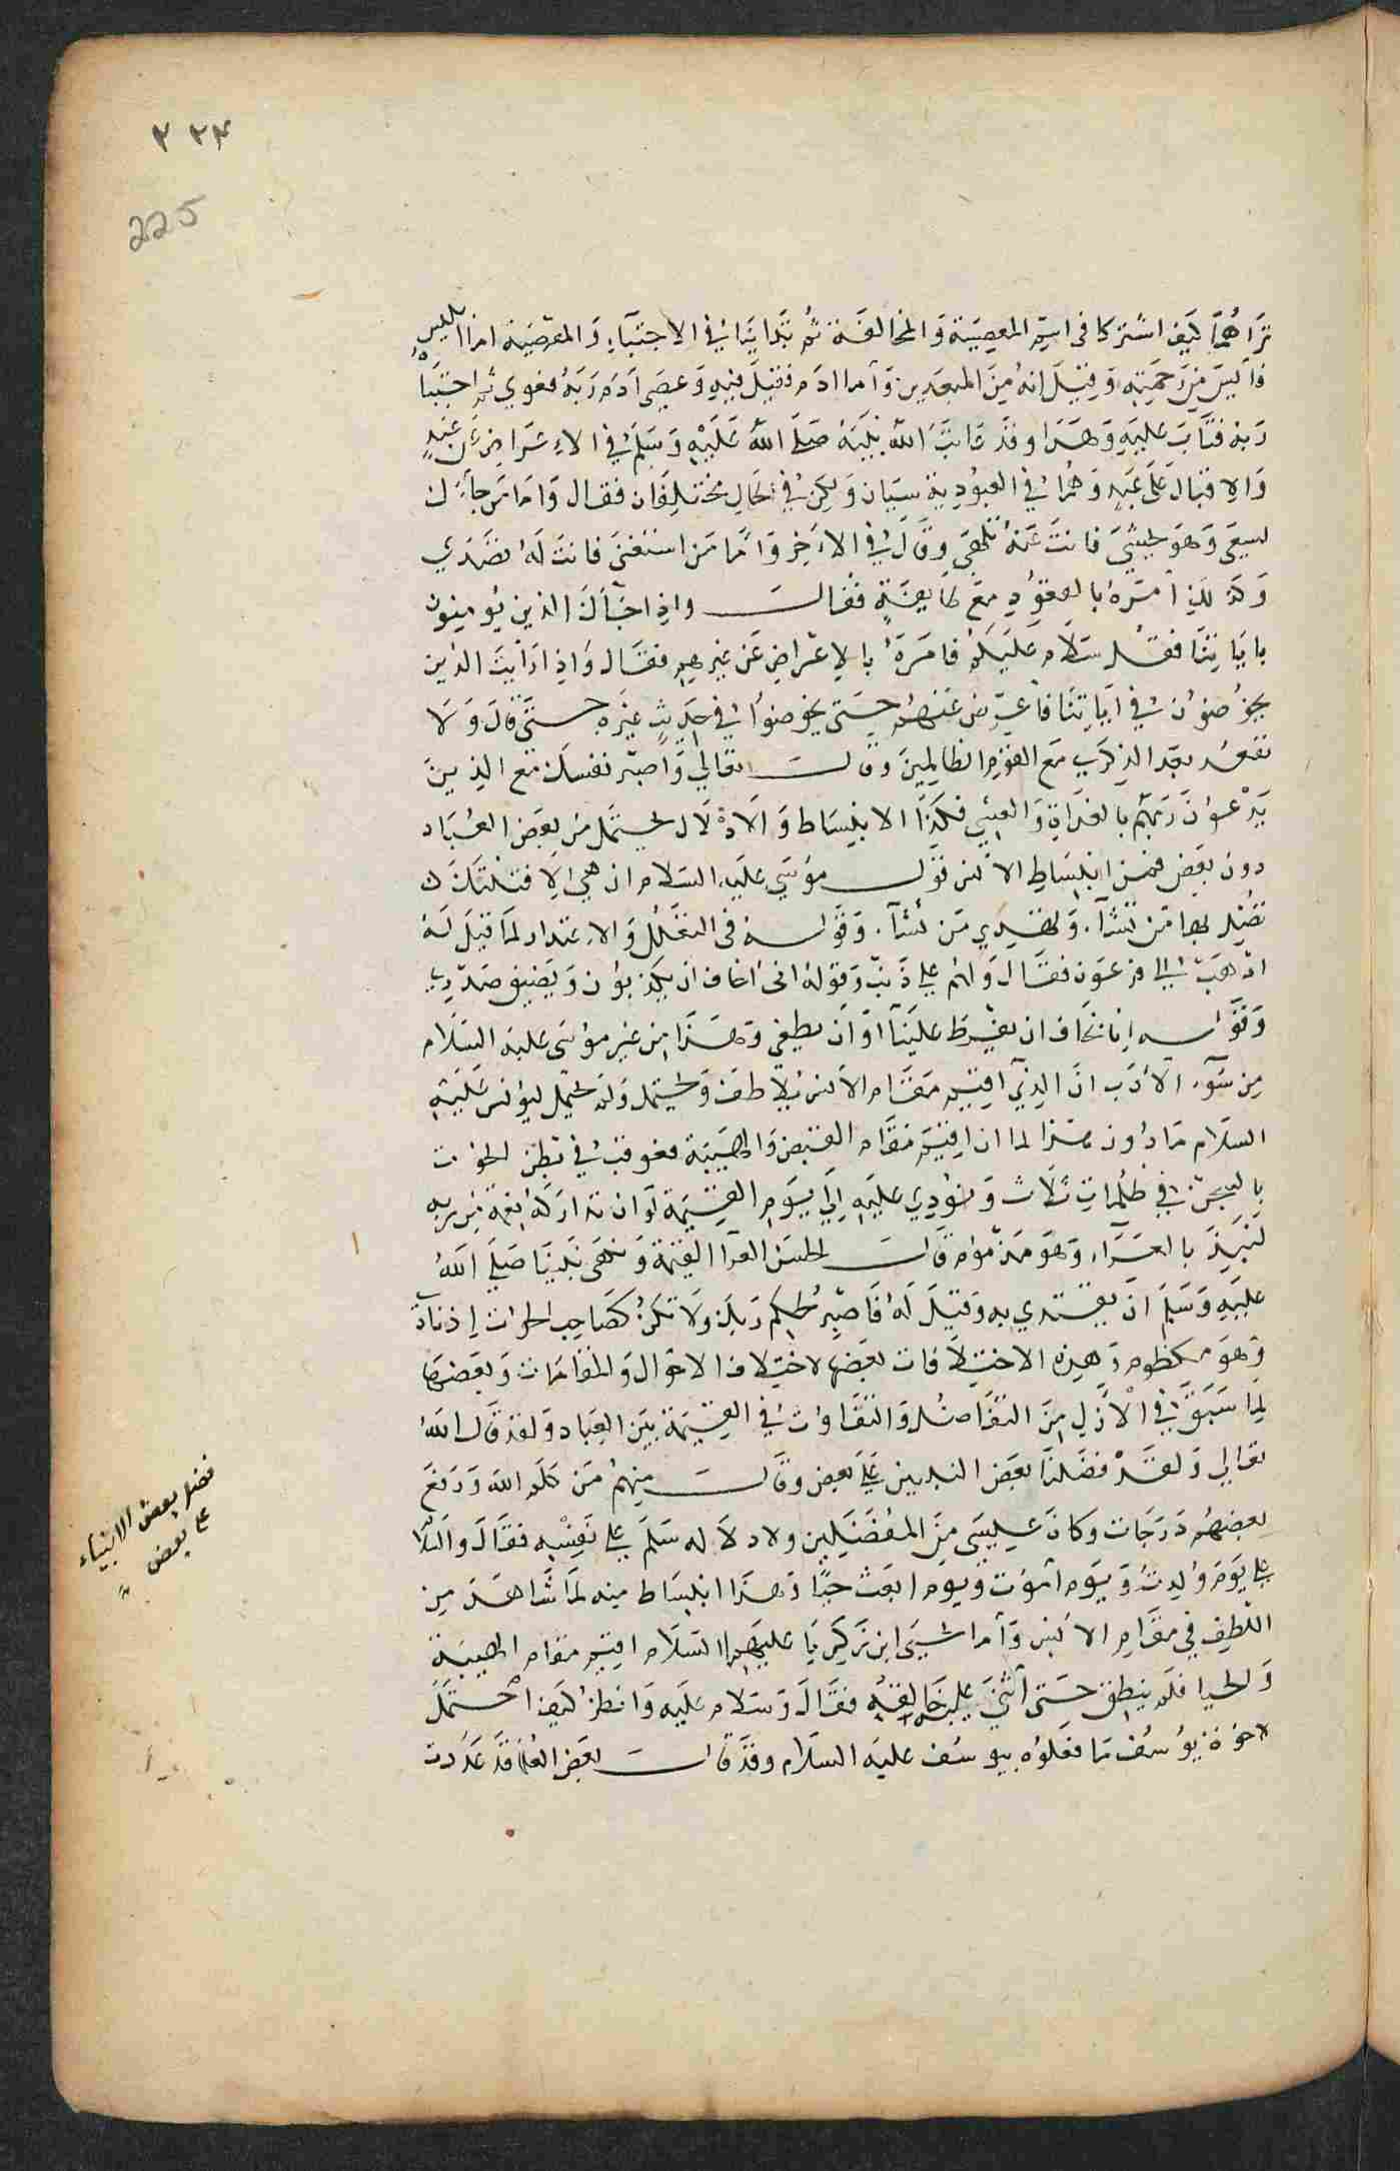 ٢٢٤
225
تراهما كيف اشتركا فى اسم المعصية والمخالفة ثم تباينا في الاجتباء والعصمة اما ابليس
فأبلس من رحمته وقيل انه من المبعدين وأما ادم فقيل فيه وعصى آدم ربه فغوي ثم اجتباه
ربه فتاب عليه وهدا وقد عاتب الله نبيه صلى الله عليه وسلم في الاعراض عن عبد
والاقبال على عبد وهما في العبودية سيان ولكن في الحال مختلفان فقال واما من جاءك
يسعى وهو يخشى فانت عنه تلهى وقال في الاخر وأما من استغنى فانت له تصدي
وكذلك امره بالقعود مع طايفة فقال واذا جآك الذين يومنون
باياتنا فقل سلام عليكم فامره بالاعراض عن غيرهم فقال واذا رأيت الذين
يخوضون في آياتنا فاعرض عنهم حتى يخوضوا في حديث غيره حتى قال ولا
تقعد بعد الذكرى مع القوم الظالمين وقال تعالي واصبر نفسك مع الذين
يدعون ربهم بالغداة والعشي فكذا الانبساط والادلال يحتمل من بعض العباد
دون بعض فمن انبساط الانس قول موسي عليه السلام ان هي الا فتنتك
تضل بها من تشآ وتهدي من تشآ وقوله فى التعلل والاعتذار لما قيل له
اذهب الى فرعون فقال ولهم علي ذنب وقوله انى اخاف ان يكذبون ويضيق صدري
وقوله اننا نخاف ان يفرط علينا او أن يطغى وهذا من غير موسى عليه السلام
من سوء الادب ان الذي اقيم مقام الانس يلاطف ويحتمل ولم يحتمل ليونس عليه
السلام ما دون هذا لما ان اقيم مقام القبض والهيبة فعوقب في بطن الحوت
بالسجن في ظلمات ثلاث ونودي عليه الي يوم القيمة لولا ان تداركه نعمة من ربه
لنبذ بالعرآء وهو مذموم قال الحسن العرآ القيمة ونهى نبينا صلى الله
عليه وسلم ان يقتدي به وقيل له فاصبر لحكم ربك ولا تكن كصاحب الحوت إذ نادى
وهو مكظوم وهذه الاختلافات بعضها لاختلاف الاحوال والمقامات وبعضها
لما سبق في الازل من التفاضل والتفاوت في القسمة بين العباد ولقد قال الله
تعالي ولقد فضلنا بعض النبيين على بعض وقال منهم من كلم الله ورفع
بعضهم درجات وكان عيسى من المفضلين ولادلاله سلم على نفسه فقال والسلام
علي يوم ولدت ويوم اموت ويوم ابعث حيا وهذا انبساط منه لما شاهد من
اللطف في مقام الانس وأما يحيى ابن زكريا عليهما السلام اقيم مقام الهيبة
والحيا فلم ينطق حتى أثنى عليه خالقه فقال وسلام عليه وانظر كيف احتمل
لاخوة يوسف ما فعلوه بيوسف عليه السلام وقد قال بعض العلماء قد عددت
فضل بعض الانبياء
على بعض